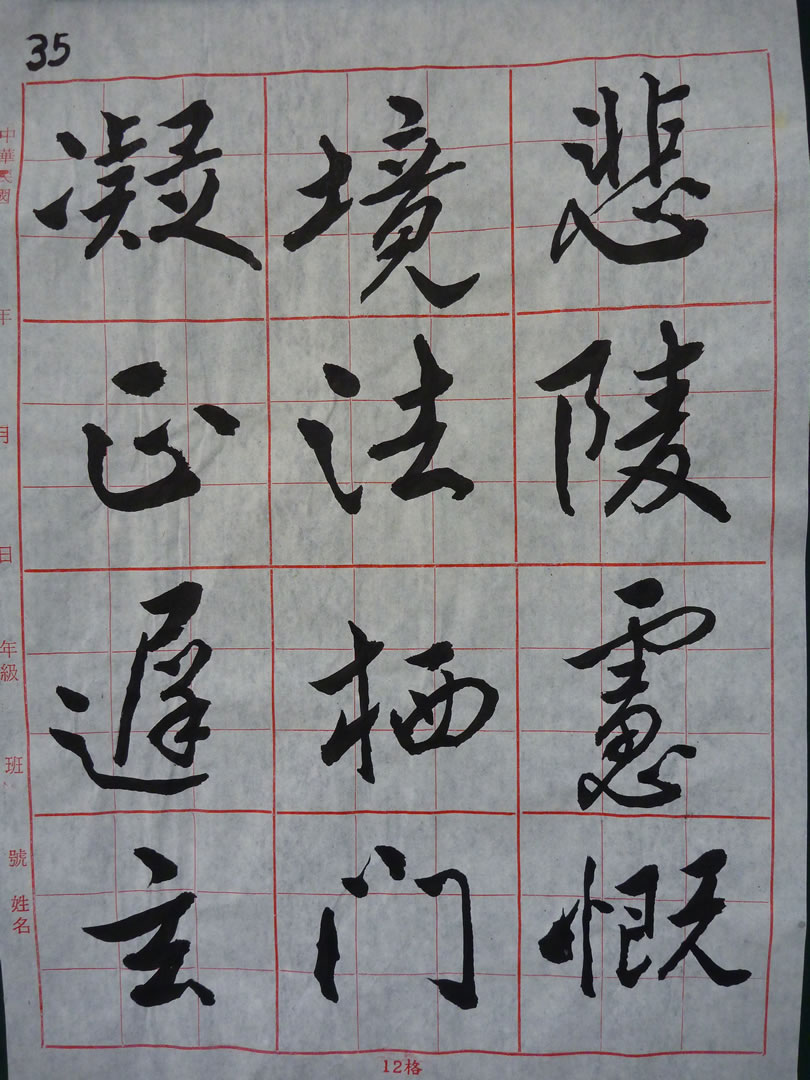 35
凝境悲
正法陵
遲栖慮
玄門慨
中華民國 年 月 日 年級 班 號 姓名
12格